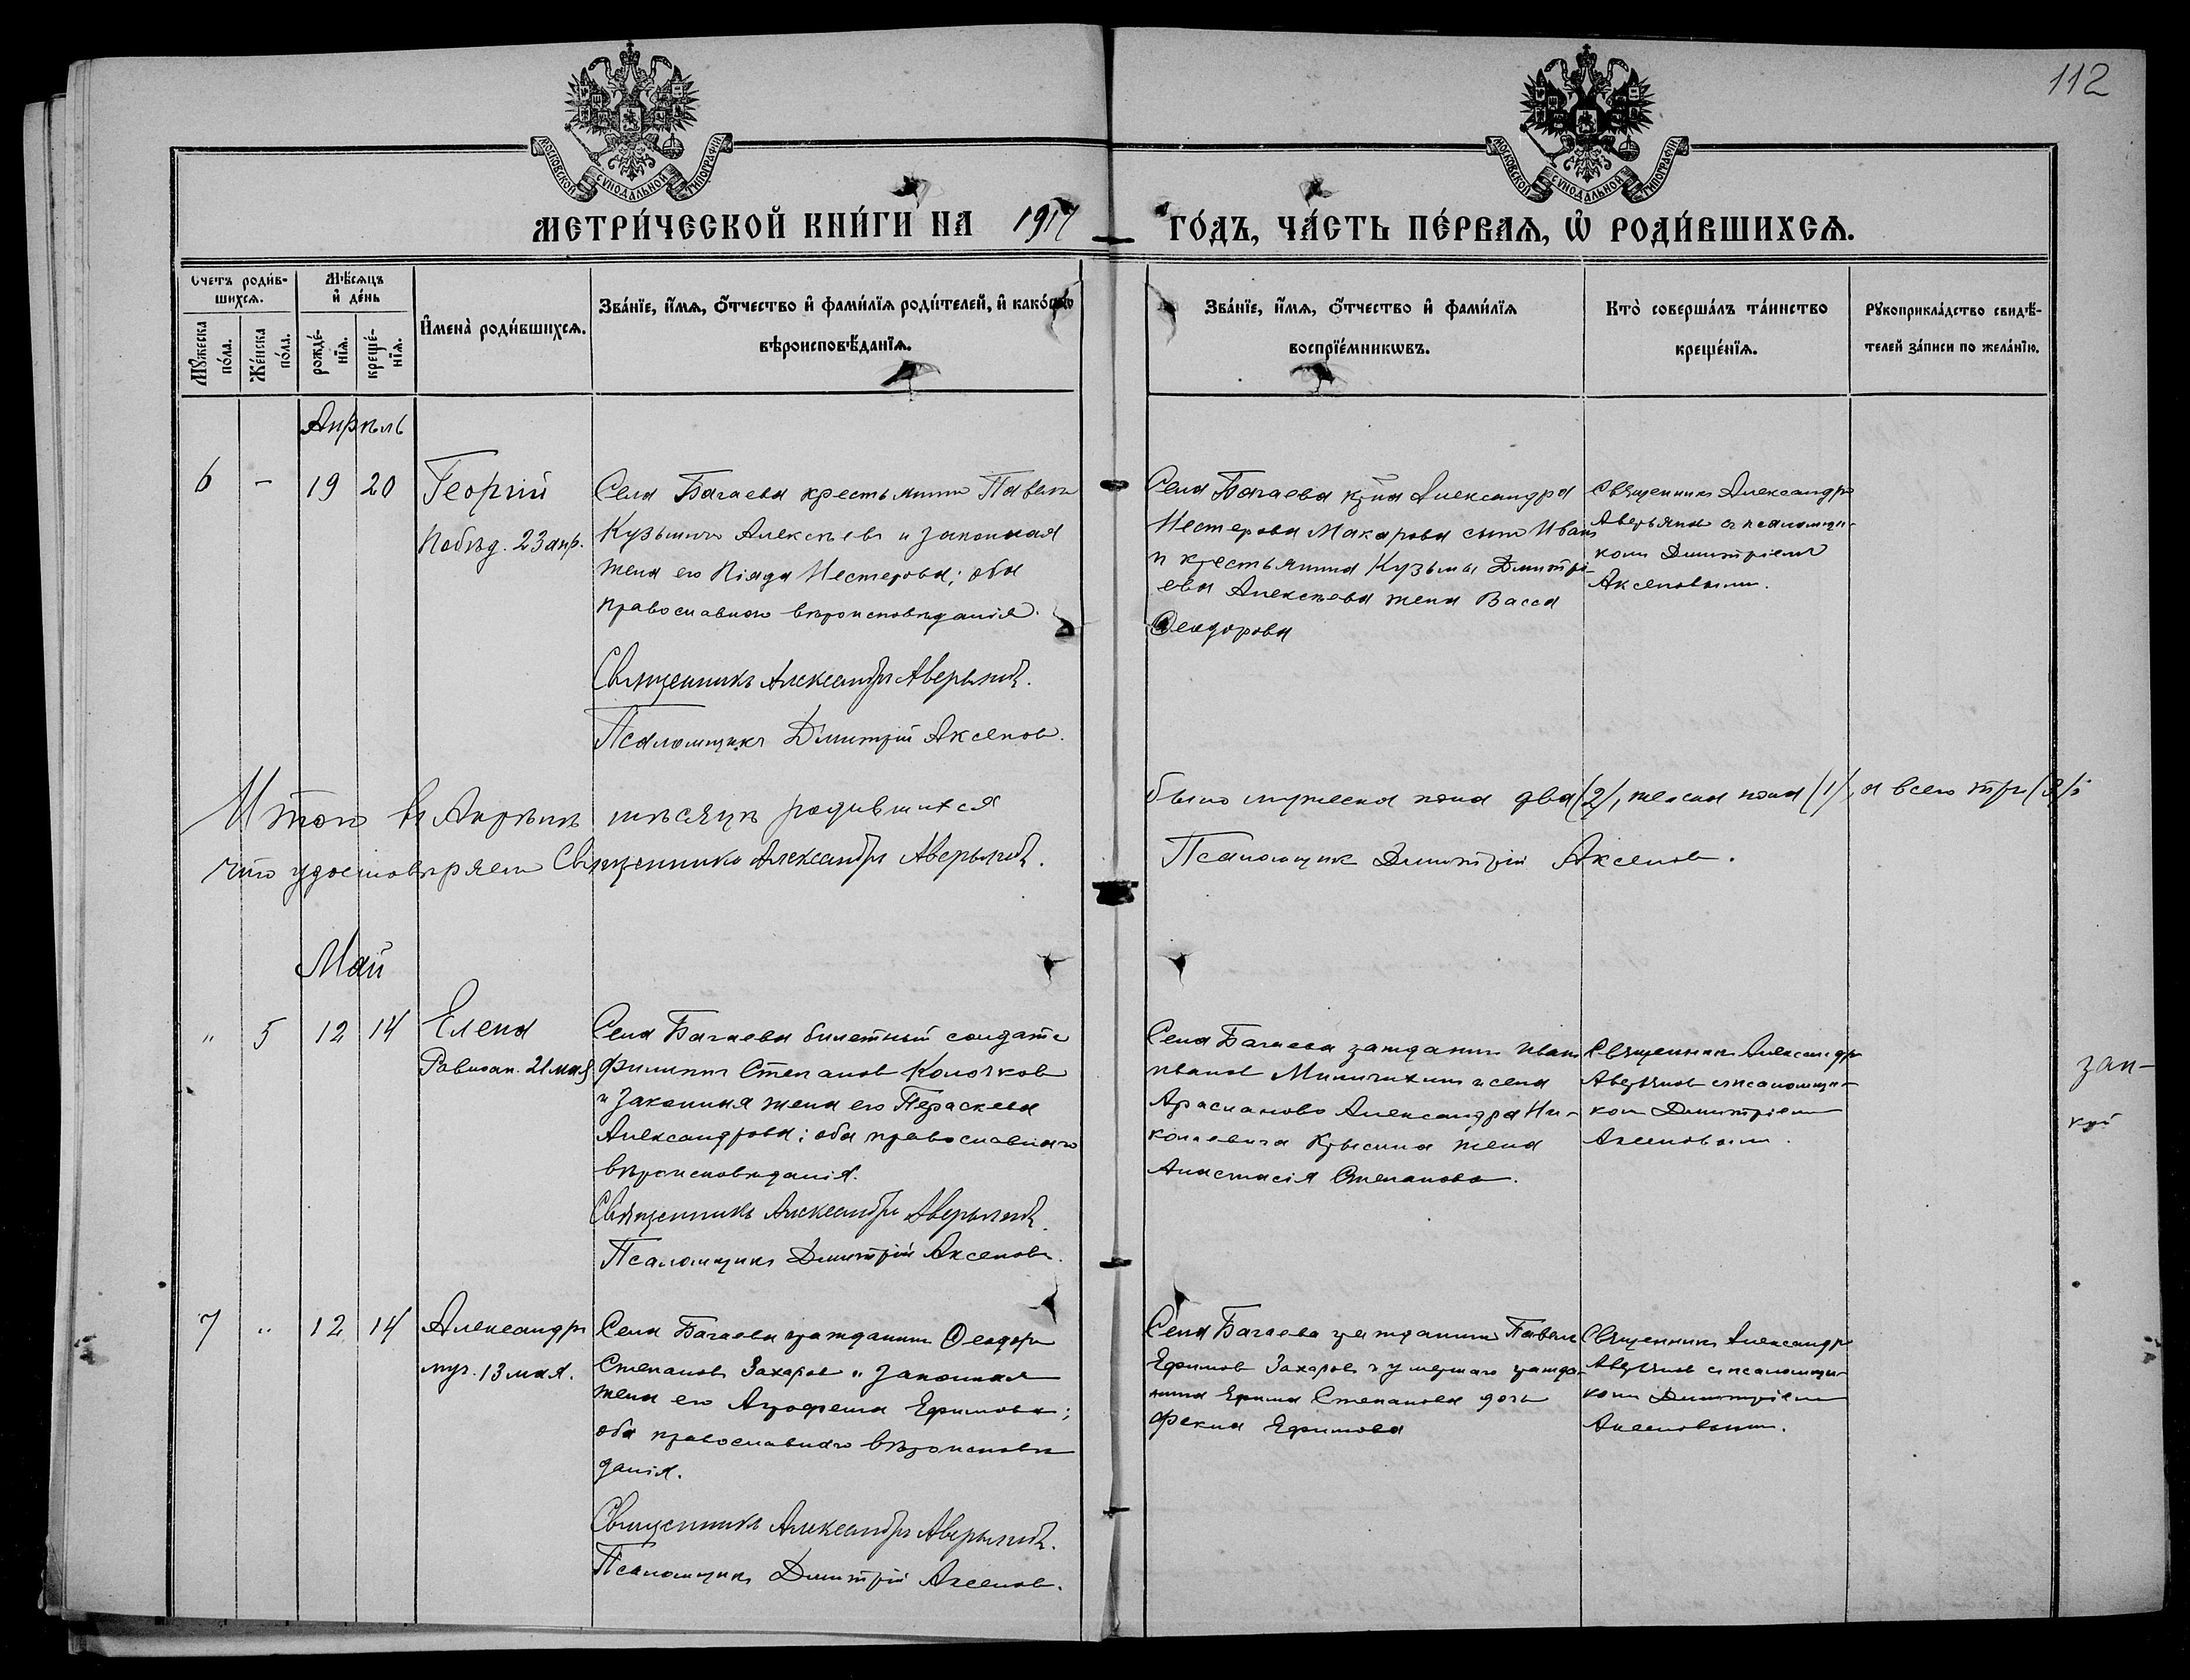 112
МОСКОВСКОЙ СѴНОДАЛЬНОЙ ТИПОГРАФІИ
МОСКОВСКОЙ СѴНОДАЛЬНОЙ ТИПОГРАФІИ
МЕТРИ́ЧЕСКОЙ КНИ́ГИ НА 1917 ГО́ДЪ, ЧА́СТЬ ПЕ́РВАѦ, Ѡ҆ РОДИ́ВШИХСѦ.
Счетъ роди́в-
шихсѧ.
Мꙋ́жеска
по́ла.
Же́нска
по́ла.
Мѣ́сѧцъ
и҆ де́нь
рожде́-
нїѧ.
креще́-
нїѧ.
И҆мена̀ роди́вшихсѧ.
Зва́нїе, и҆́мѧ, ѻ҆́тчество и҆ фами́лїѧ роди́телей, и҆ како́гѡ
вѣроисповѣ́данїѧ.
Зва́нїе, и҆́мѧ, ѻ҆́тчество и҆ фами́лїѧ
воспрїе́мникѡвъ.
Кто̀ соверша́лъ та́инство
креще́нїѧ.
Рꙋкоприкла́дство свидѣ́-
телей за́писи по жела́нїю.
Апрѣль
6 - 19 20
Георгій
Побѣд. 23 апр.
Села Багаева крестьянинъ Павелъ
Кузьминъ Алексѣевъ и законная
жена его Нестерова; оба
православнаго вѣроисповѣданія.
Священникъ Александръ Аверьяновъ.
Псаломщикъ Димитрій Аксеновъ.
Села Багаева кр̃на Александра
Нестерова Макарова сынъ Иванъ
и крестьянина Кузьмы Димитрі-
ева Алексѣева жена Васса
Ѳеодорова
Священникъ Александръ
Аверьяновъ съ псаломщи-
комъ Димитріемъ
Аксеновымъ.
Итого въ Апрѣлѣ мѣсяцѣ родившихся
было мужеска пола два /2/, женска пола /1/, а всего три /3/
что удостовѣряемъ Священникъ Александръ Аверьяновъ.
Псаломщикъ Димитрій Аксеновъ.
Май
" 5 12 14
Елена
Равноап. 21 мая
Села Багаева билетный солдатъ
Филиппъ Степановъ Колочков
и законная жена его Параскева
Александрова; оба православнаго
вѣроисповѣданія.
Священникъ Александръ Аверьяновъ.
Псаломщикъ Димитрій Аксеновъ.
Села Багаева гражданинъ Иванъ
Ивановъ и села
Арасланово Александра Ни-
колаевича Крысина жена
Анастасія Степанова.
Священникъ Александръ
Аверьяновъ съ псаломщи-
комъ Димитріемъ
Аксеновымъ.
7 " 12 14
Александръ
муч. 13 мая.
Села Багаева гражданинъ Ѳеодоръ
Степановъ Захаровъ и законная
жена его Ефимова;
оба православнаго вѣроисповѣ
данія.
Священникъ Александръ Аверьяновъ.
Псаломщикъ Димитрій Аксеновъ.
Села Багаева гражданинъ Павелъ
Ефимовъ Захаровъ и умершаго гражда-
нина Ефима Степанова дочь
Фекла Ефимова
Священникъ Александръ
Аверьяновъ съ псаломщи-
комъ Димитріемъ
Аксеновымъ.